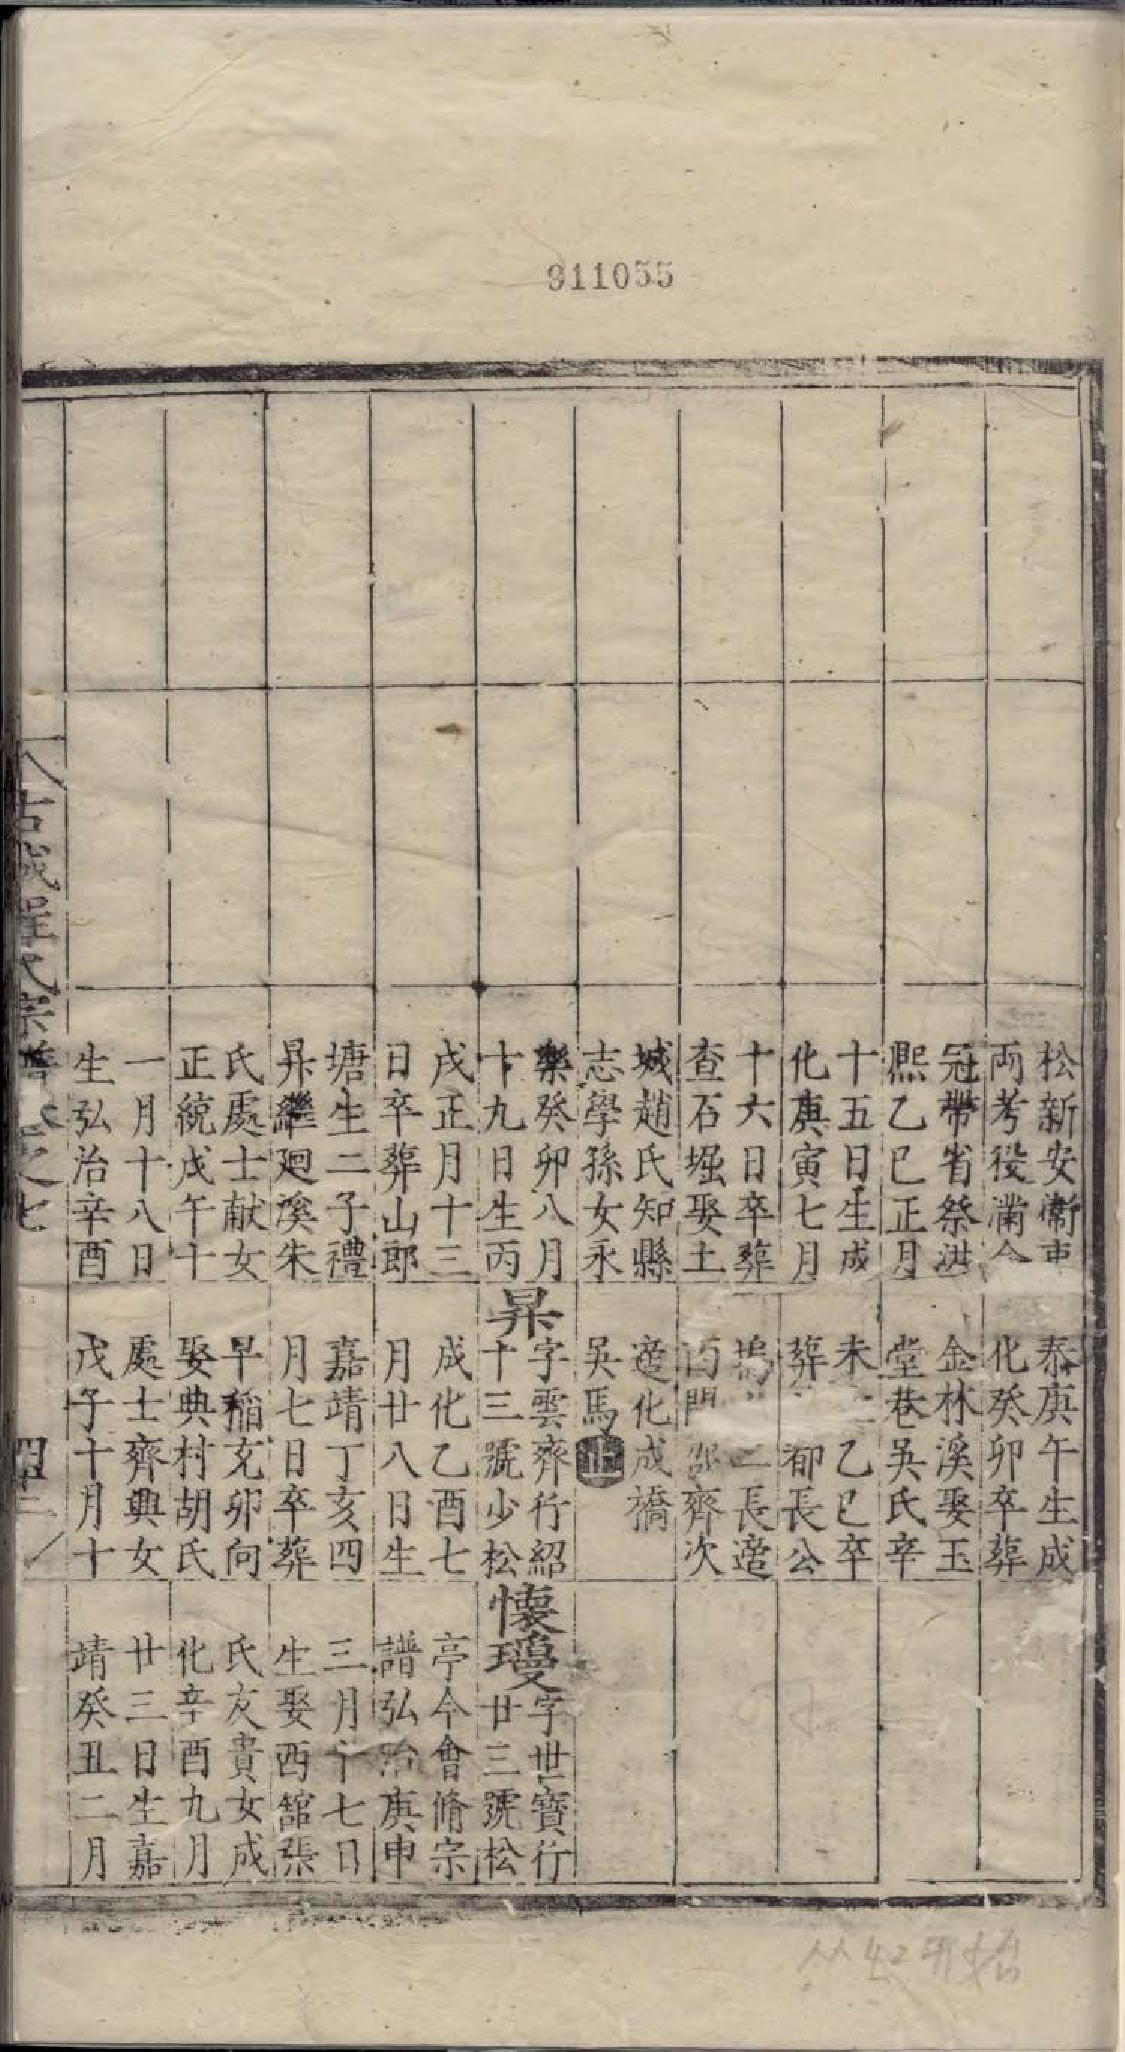 911055
松新安衛吏
両考役滿今
冠帶省祭洪
熈乙巳正月
十五日生成
化庚寅七月
十六日卒葬
查石堀娶土
城趙氏知縣
志學孫女永
樂癸卯八月
十九日生丙
戌正月十三
日卒葬山郎
塘生二子禮
昇繼廻溪朱
氏處士献女
正統戊午十
一月十八日
生弘治辛酉
泰庚午生成
化癸卯卒葬
金林溪娶玉
堂巷吳氏辛
未 乙巳卒
葬 郁長公
塢 二長適
西門邵齊次
適化成橋
吳馬止
昇
字雲齊行紹
十三號少松
成化乙酉七
月廿八日生
嘉靖丁亥四
月七日卒葬
早稲充卯向
娶典村胡氏
處士齊興女
戊子十月十
懷瓊
字世寳行
廿三號松
亭今會脩宗
譜弘治庚申
三月十七日
生娶西舘張
氏友貴女成
化辛酉九月
廿三日生嘉
靖癸丑二月
古城程氏宗譜 卷之七
四十二